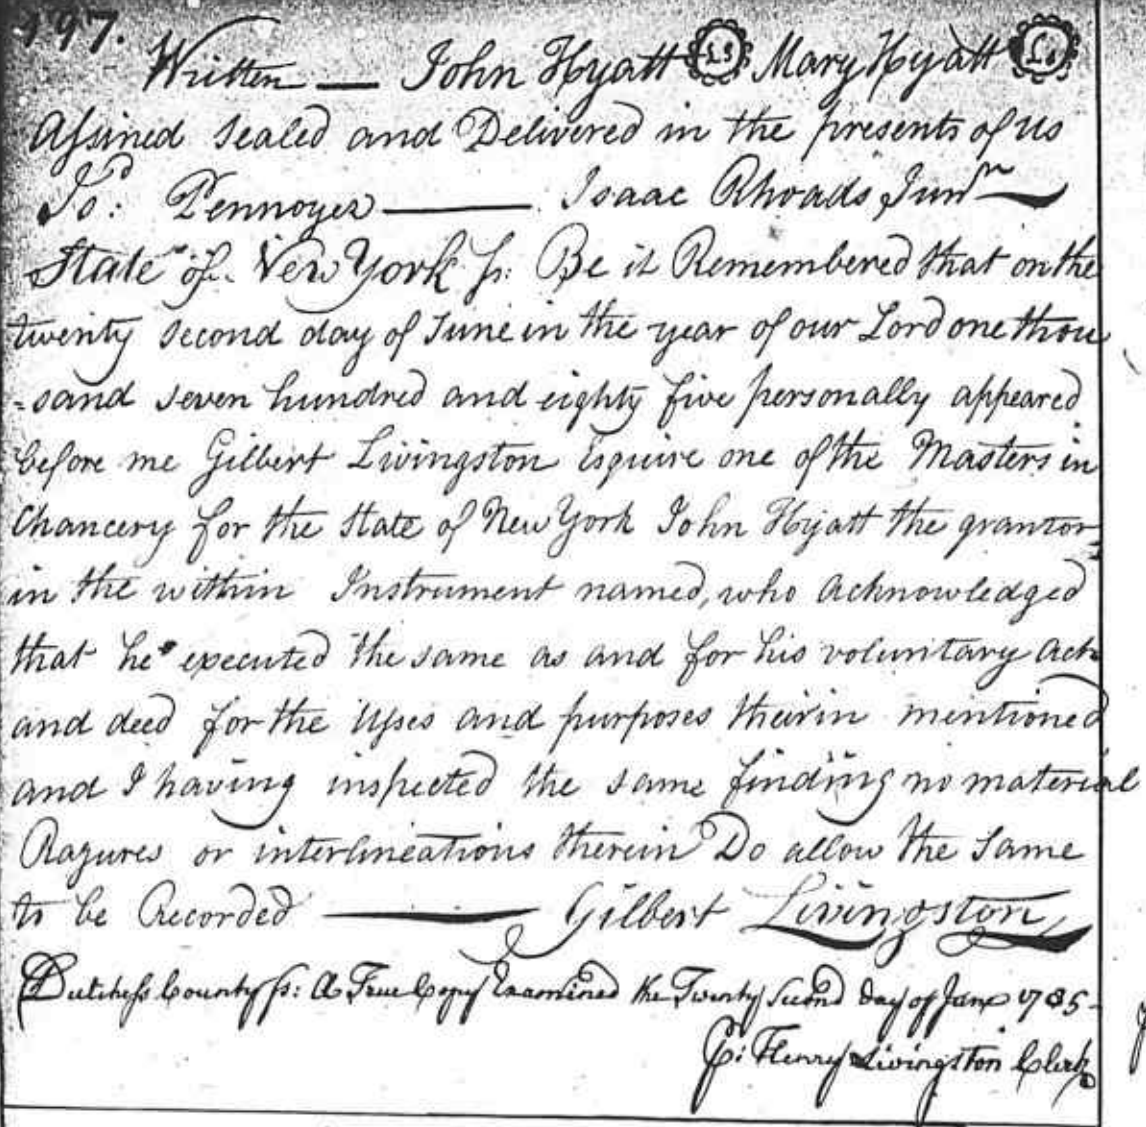 197.
Written — John Hyatt LS Mary Hyatt LS
Assined Sealed and Delivered in the presents of us
Jos: Pennoyer — Isaac Rhoads Junr
State of New York ss: Be it Remembered that on the
twenty second day of June in the year of our Lord one thou
=sand seven hundred and eighty five personally appeared
before me Gilbert Livingston Esquire one of the Masters in
Chancery for the State of New York John Hyatt the grantor
in the within Instrument named, who acknowledged
that he executed the same as and for his voluntary act
and deed for the Uses and purposes therin mentioned
and I having inspected the same finding no material
Razures or interlineations therein Do allow the Same
to be Recorded — Gilbert Livingston
Dutchess County ss: A True Copy Examined the Twenty Second day of June 1785-
Pr Henry Livingston Clerk